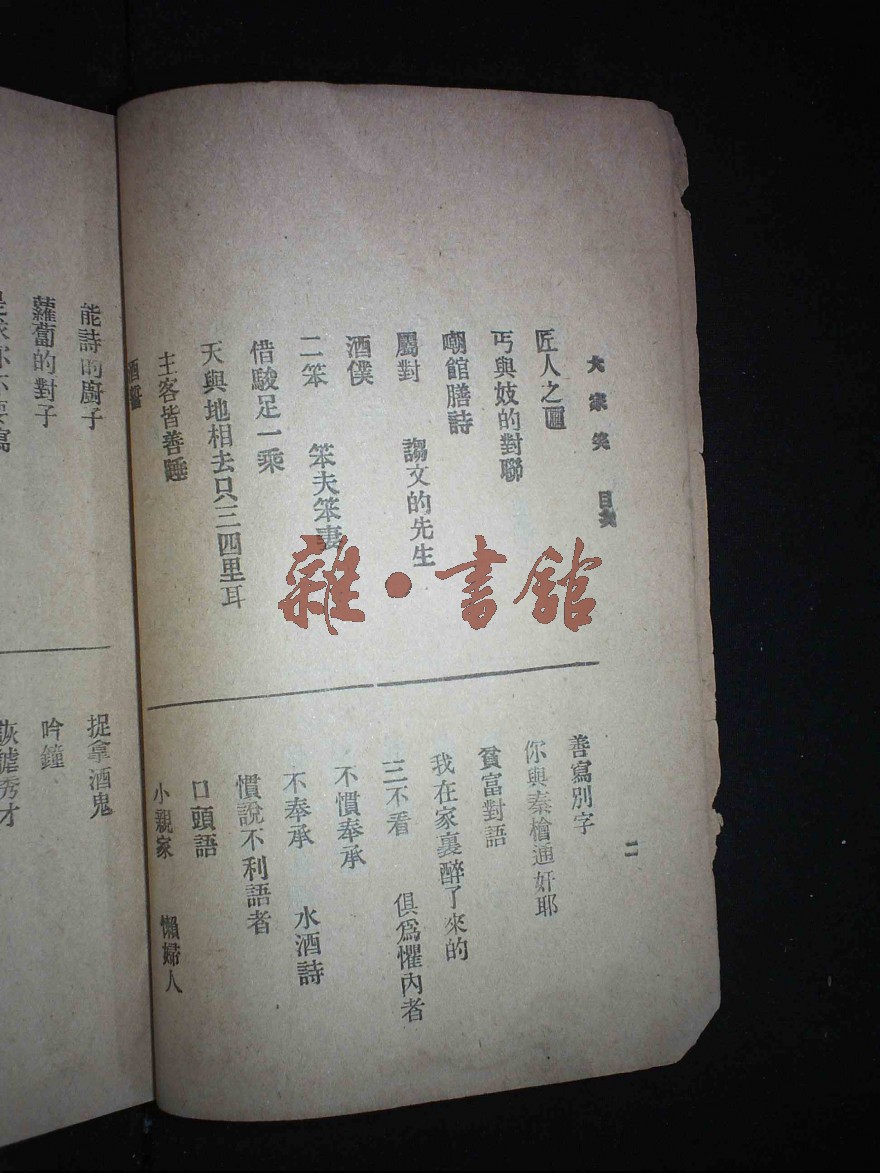 大家笑 目次
匠人之匾
丐與妓的對聯
嘲館膳詩
屬對 謅文的先生
酒僕
二笨 笨夫笨妻
借駿足一乘
天與地相去只三四里耳
主客皆善睡
善寫別字
你與秦檜通奸耶
貧富對語
我在家裏醉了來的
三不看 俱爲懼內者
不慣奉承
不奉承 水酒詩
慣說不利語者
口頭語
小親家 懶婦人
二
能詩的廚子
蘿蔔的對子
捉拿酒鬼
吟鐘
詼謔秀才
雜·書館